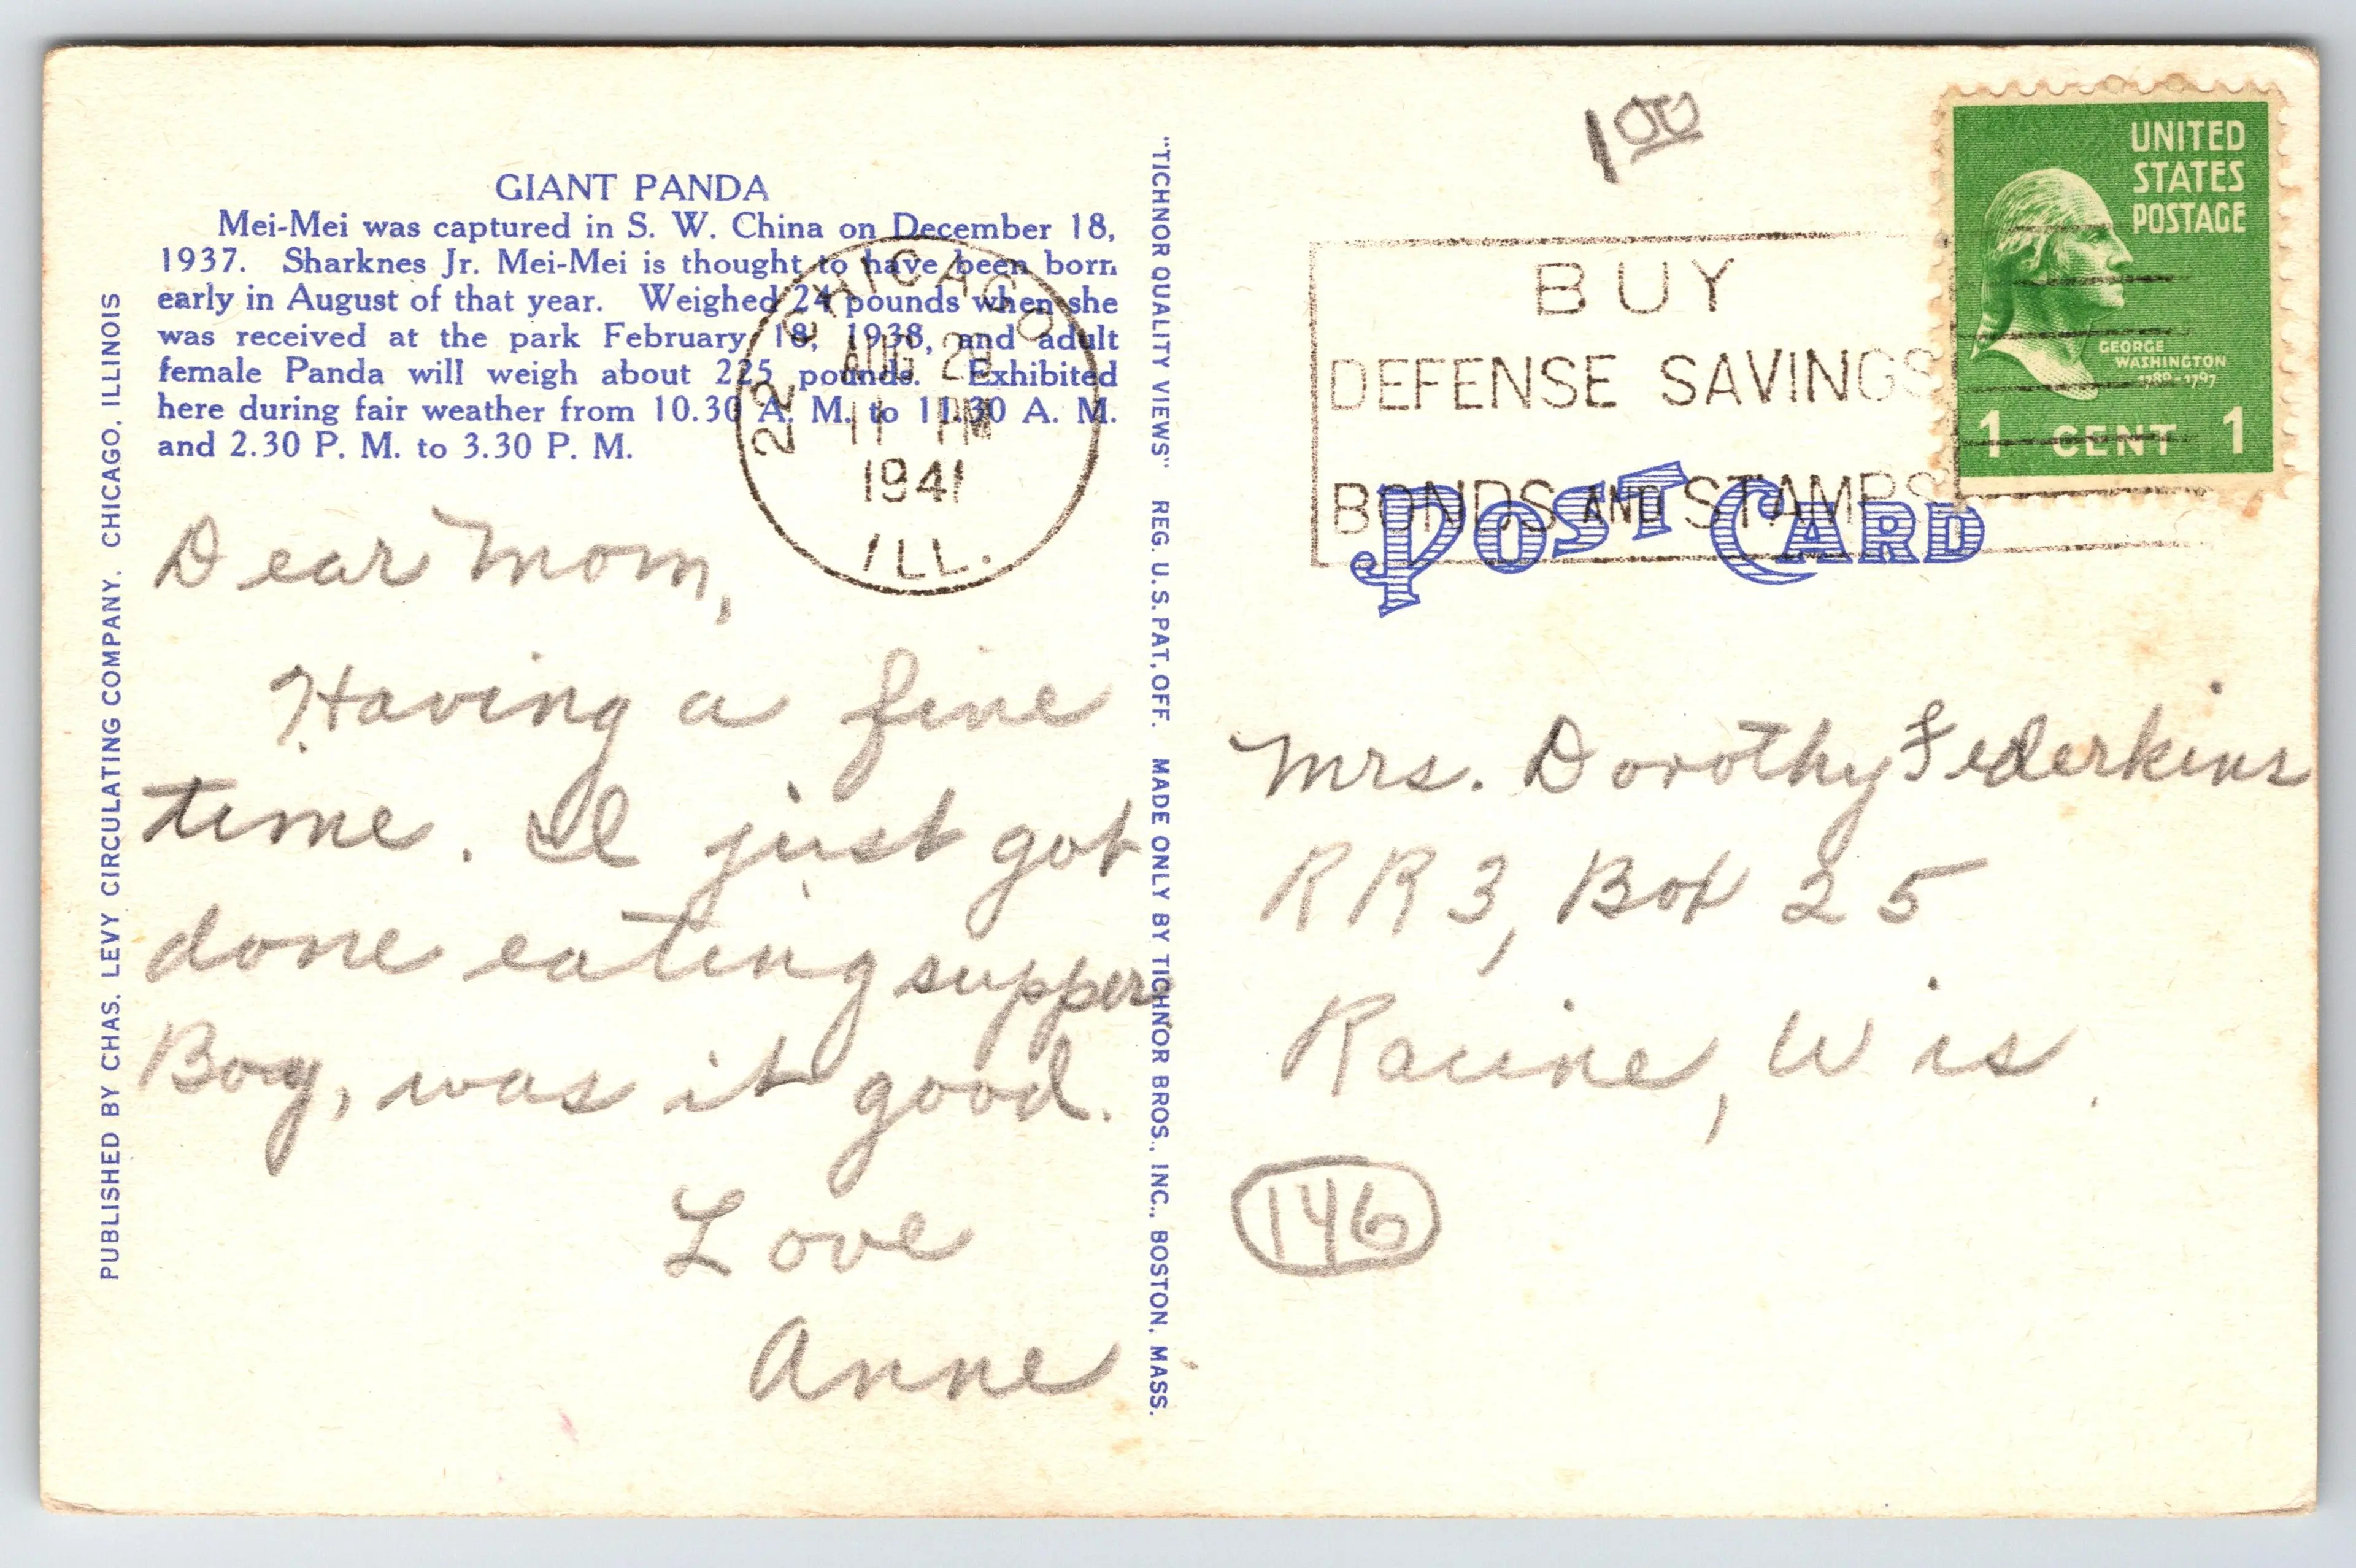 GIANT PANDA
Mei-Mei was captured in S. W. China on December 18,
1937. Sharknes Jr. Mei-Mei is thought to have been born
early in August of that year. Weighed 24 pounds when she
was received at the park February 18, 1938, and adult
female Panda will weigh about 225 pounds. Exhibited
here during fair weather from 10.30 A. M. to 11.30 A. M.
and 2.30 P. M. to 3.30 P. M.
CHICAGO
22
AUG 28
11 PM
1941
ILL.
Dear Mom,
Having a fine
time. I just got
done eating supper.
Boy, was it good.
Love
Anne
PUBLISHED BY CHAS. LEVY CIRCULATING COMPANY, CHICAGO, ILLINOIS
"TICHNOR QUALITY VIEWS" REG. U.S. PAT. OFF. MADE ONLY BY TICHNOR BROS., INC., BOSTON, MASS.
1 00
BUY
DEFENSE SAVINGS
BONDS AND STAMPS
UNITED
STATES
POSTAGE
GEORGE
WASHINGTON
1789-1797
1 CENT 1
POST CARD
Mrs. Dorothy Federkins
RR3, Box 25
Racine, Wis.
146